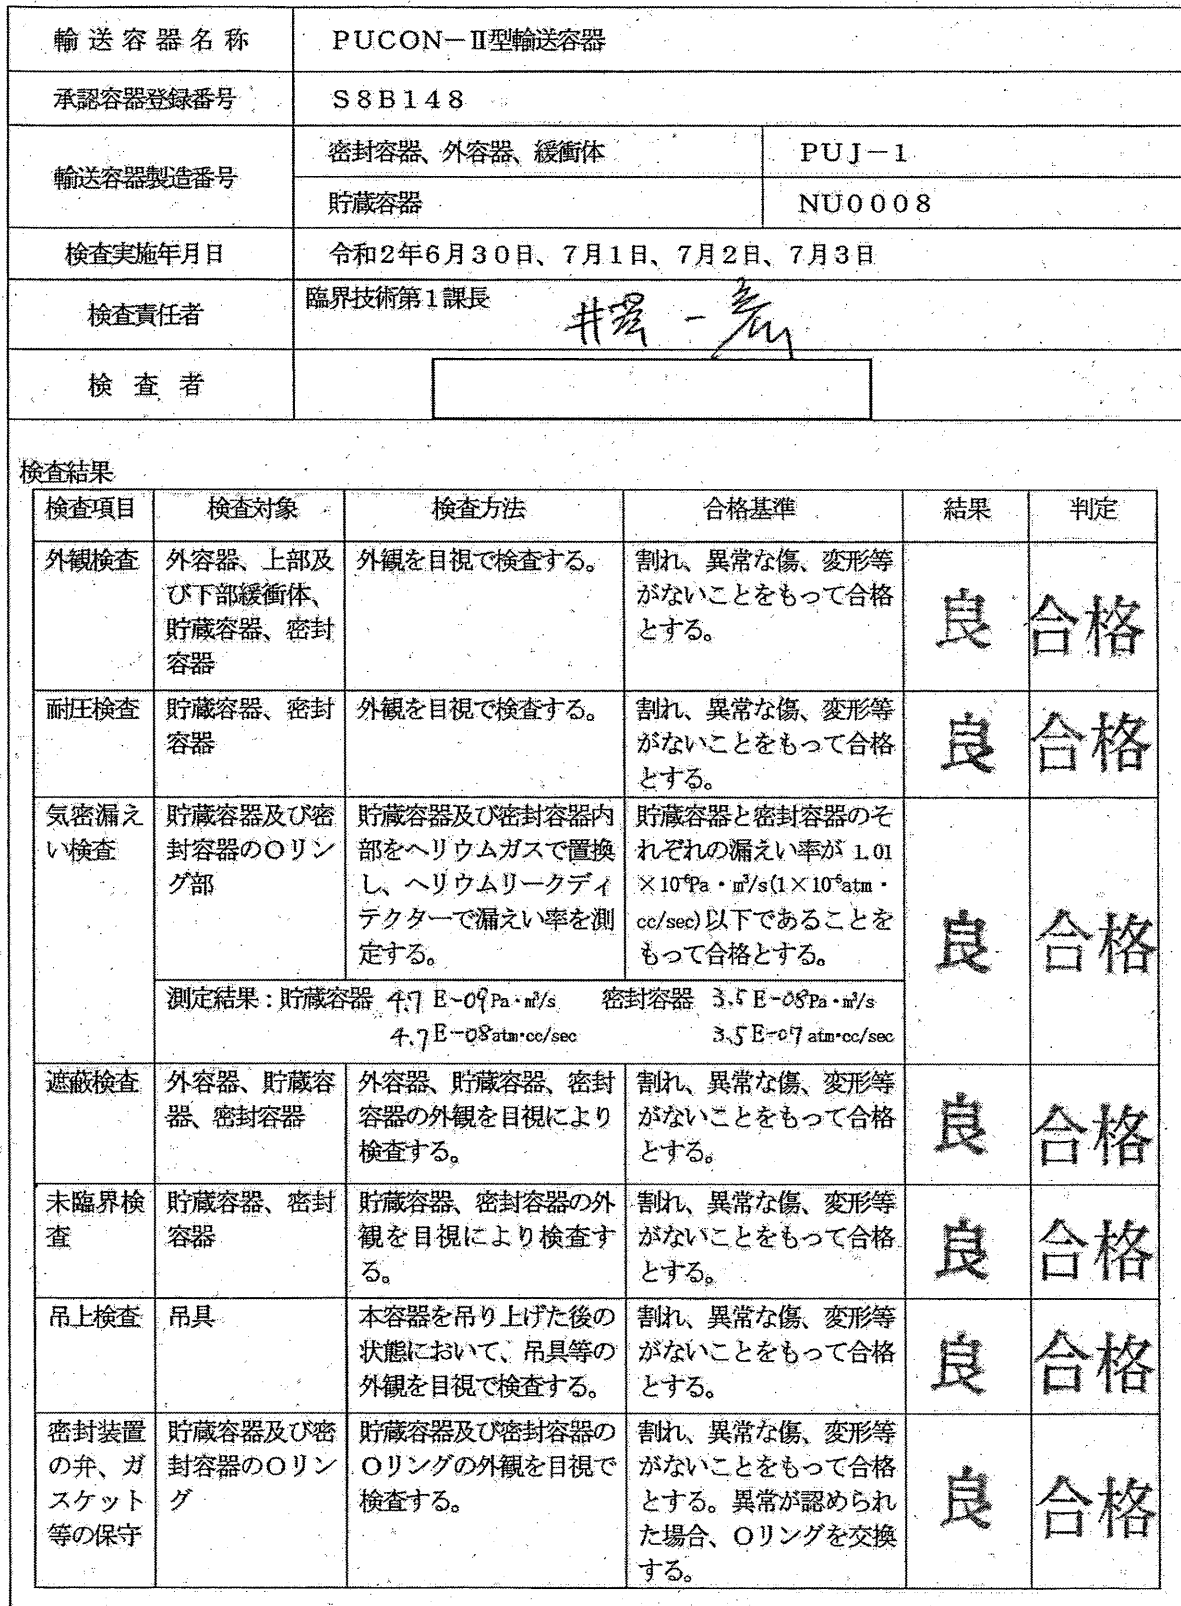 輸送容器名称
PUCON－Ⅱ型輸送容器
承認容器登録番号
S8B148
輸送容器製造番号
密封容器、外容器、緩衝体
PUJ－1
貯蔵容器
NU0008
検査実施年月日
令和2年6月30日、7月1日、7月2日、7月3日
検査責任者
臨界技術第1課長
一
検査者
検査結果
検査項目
検査対象
検査方法
合格基準
結果
判定
外観検査
外容器、上部及
び下部緩衝体、
貯蔵容器、密封
容器
外観を目視で検査する。
割れ、異常な傷、変形等
がないことをもって合格
とする。
良
合格
耐圧検査
貯蔵容器、密封
容器
外観を目視で検査する。
割れ、異常な傷、変形等
がないことをもって合格
とする。
良
合格
気密漏え
い検査
貯蔵容器及び密
封容器のOリン
グ部
貯蔵容器及び密封容器内
部をヘリウムガスで置換
し、ヘリウムリークディ
テクターで漏えい率を測
定する。
貯蔵容器と密封容器のそ
れぞれの漏えい率が 1.01
×10⁻⁶Pa・m³/s(1×10⁻⁵atm・
cc/sec)以下であることを
もって合格とする。
良
合格
測定結果：貯蔵容器 4.7 E-09Pa・m³/s 密封容器 3.5 E-08Pa・m³/s
4.7 E-08atm・cc/sec 3.5 E-07 atm・cc/sec
遮蔽検査
外容器、貯蔵容
器、密封容器
外容器、貯蔵容器、密封
容器の外観を目視により
検査する。
割れ、異常な傷、変形等
がないことをもって合格
とする。
良
合格
未臨界検
査
貯蔵容器、密封
容器
貯蔵容器、密封容器の外
観を目視により検査す
る。
割れ、異常な傷、変形等
がないことをもって合格
とする。
良
合格
吊上検査
吊具
本容器を吊り上げた後の
状態において、吊具等の
外観を目視で検査する。
割れ、異常な傷、変形等
がないことをもって合格
とする。
良
合格
密封装置
の弁、ガ
スケット
等の保守
貯蔵容器及び密
封容器のOリン
グ
貯蔵容器及び密封容器の
Oリングの外観を目視で
検査する。
割れ、異常な傷、変形等
がないことをもって合格
とする。異常が認められ
た場合、Oリングを交換
する。
良
合格